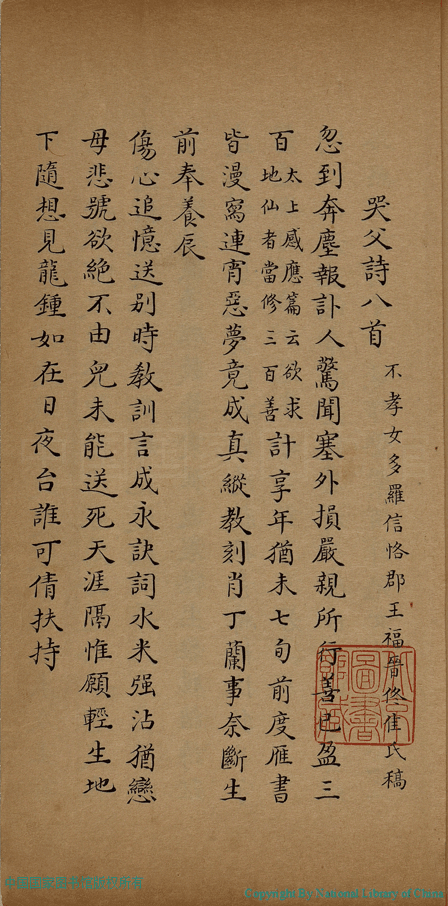 哭父詩八首
不孝女多羅信恪郡王福晉佟佳氏稿
忽到奔塵報訃人驚聞塞外損嚴親所行善已盈三
百太上感應篇云欲求
地仙者當修三百善計享年猶未七旬前度雁書
皆漫寫連宵惡夢竟成真縱教刻肖丁蘭事奈斷生
前奉養辰
傷心追憶送别時教訓言成永訣詞水米强沾猶戀
母悲號欲絕不由兒未能送死天涯隔惟願輕生地
下隨想見龍鍾如在日夜台誰可倩扶持
圖書
Copyright By National Library of China